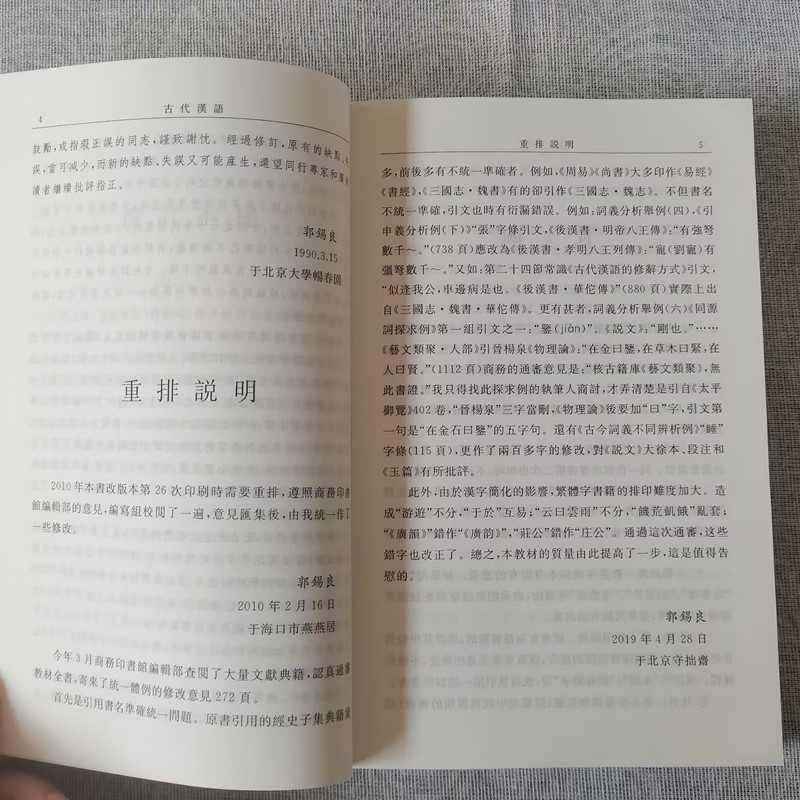 4
古代漢語
鼓勵，或指瑕正誤的同志，謹致謝忱。經過修訂，原有的缺點、
誤，當可減少，而新的缺點、失誤又可能產生，還望同行專家和
讀者繼續批評指正。
郭錫良
1990.3.15
于北京大學暢春園
重排説明
2010年本書改版本第26次印刷時需要重排，遵照商務印書
館編輯部的意見，編寫組校閱了一遍，意見匯集後，由我統一作了
一些修改。
郭錫良
2010年2月16日
于海口市燕燕居
今年3月商務印書館編輯部查閱了大量文獻典籍，認真通審
教材全書，寄來了統一體例的修改意見272頁。
首先是引用書名準確統一問題。原書引用的經史子集典籍
重排説明
5
多，前後多有不統一準確者。例如，《周易》《尚書》大多印作《易經》
《書經》，《三國志·魏書》有的卻引作《三國志·魏志》。不但書名
不統一準確，引文也時有衍漏錯誤。例如：詞義分析舉例（四），《引
申義分析例（下）》“張”字條引文，《後漢書·明帝八王傳》：“有強弩
數千～。”（738頁）應改為《後漢書·孝明八王列傳》：“寵（劉寵）有
彊弩數千～。”又如：第二十四節常識《古代漢語的修辭方式》引文，
“似逢我公，車邊病是也。《後漢書·華佗傳》”（880頁）實際上出
自《三國志·魏書·華佗傳》。更有甚者，詞義分析舉例（六）《同源
詞探求例》第一組引文之一：“鑒（jiàn）”，《説文》：“剛也。”……
《藝文類聚·人部》引晉楊泉《物理論》：“在金曰鑒，在草木曰緊，在
人曰賢。”（1112頁）商務的通審意見是：“核古籍庫《藝文類聚》，無
此書證。”我只得找此探求例的執筆人商討，才弄清楚是引自《太平
御覽》402卷，“晉楊泉”三字當刪，《物理論》後要加“曰”字，引文第
一句是“在金石曰鑒”的五字句。還有《古今詞義不同辨析例》“睡”
字條（115頁），更作了兩百多字的修改，對《説文》大徐本、段注和
《玉篇》有所批評。
此外，由於漢字簡化的影響，繁體字書籍的排印難度加大。造
成“游遊”不分，“于於”互易；“云曰雲雨”不分，“饑荒飢餓”亂套；
“《廣韻》”錯作“《廣韵》”，“莊公”錯作“庄公”。通過這次通審，這些
錯字也改正了。總之，本教材的質量由此提高了一步，這是值得告
慰的。
郭錫良
2019年4月28日
于北京守拙齋